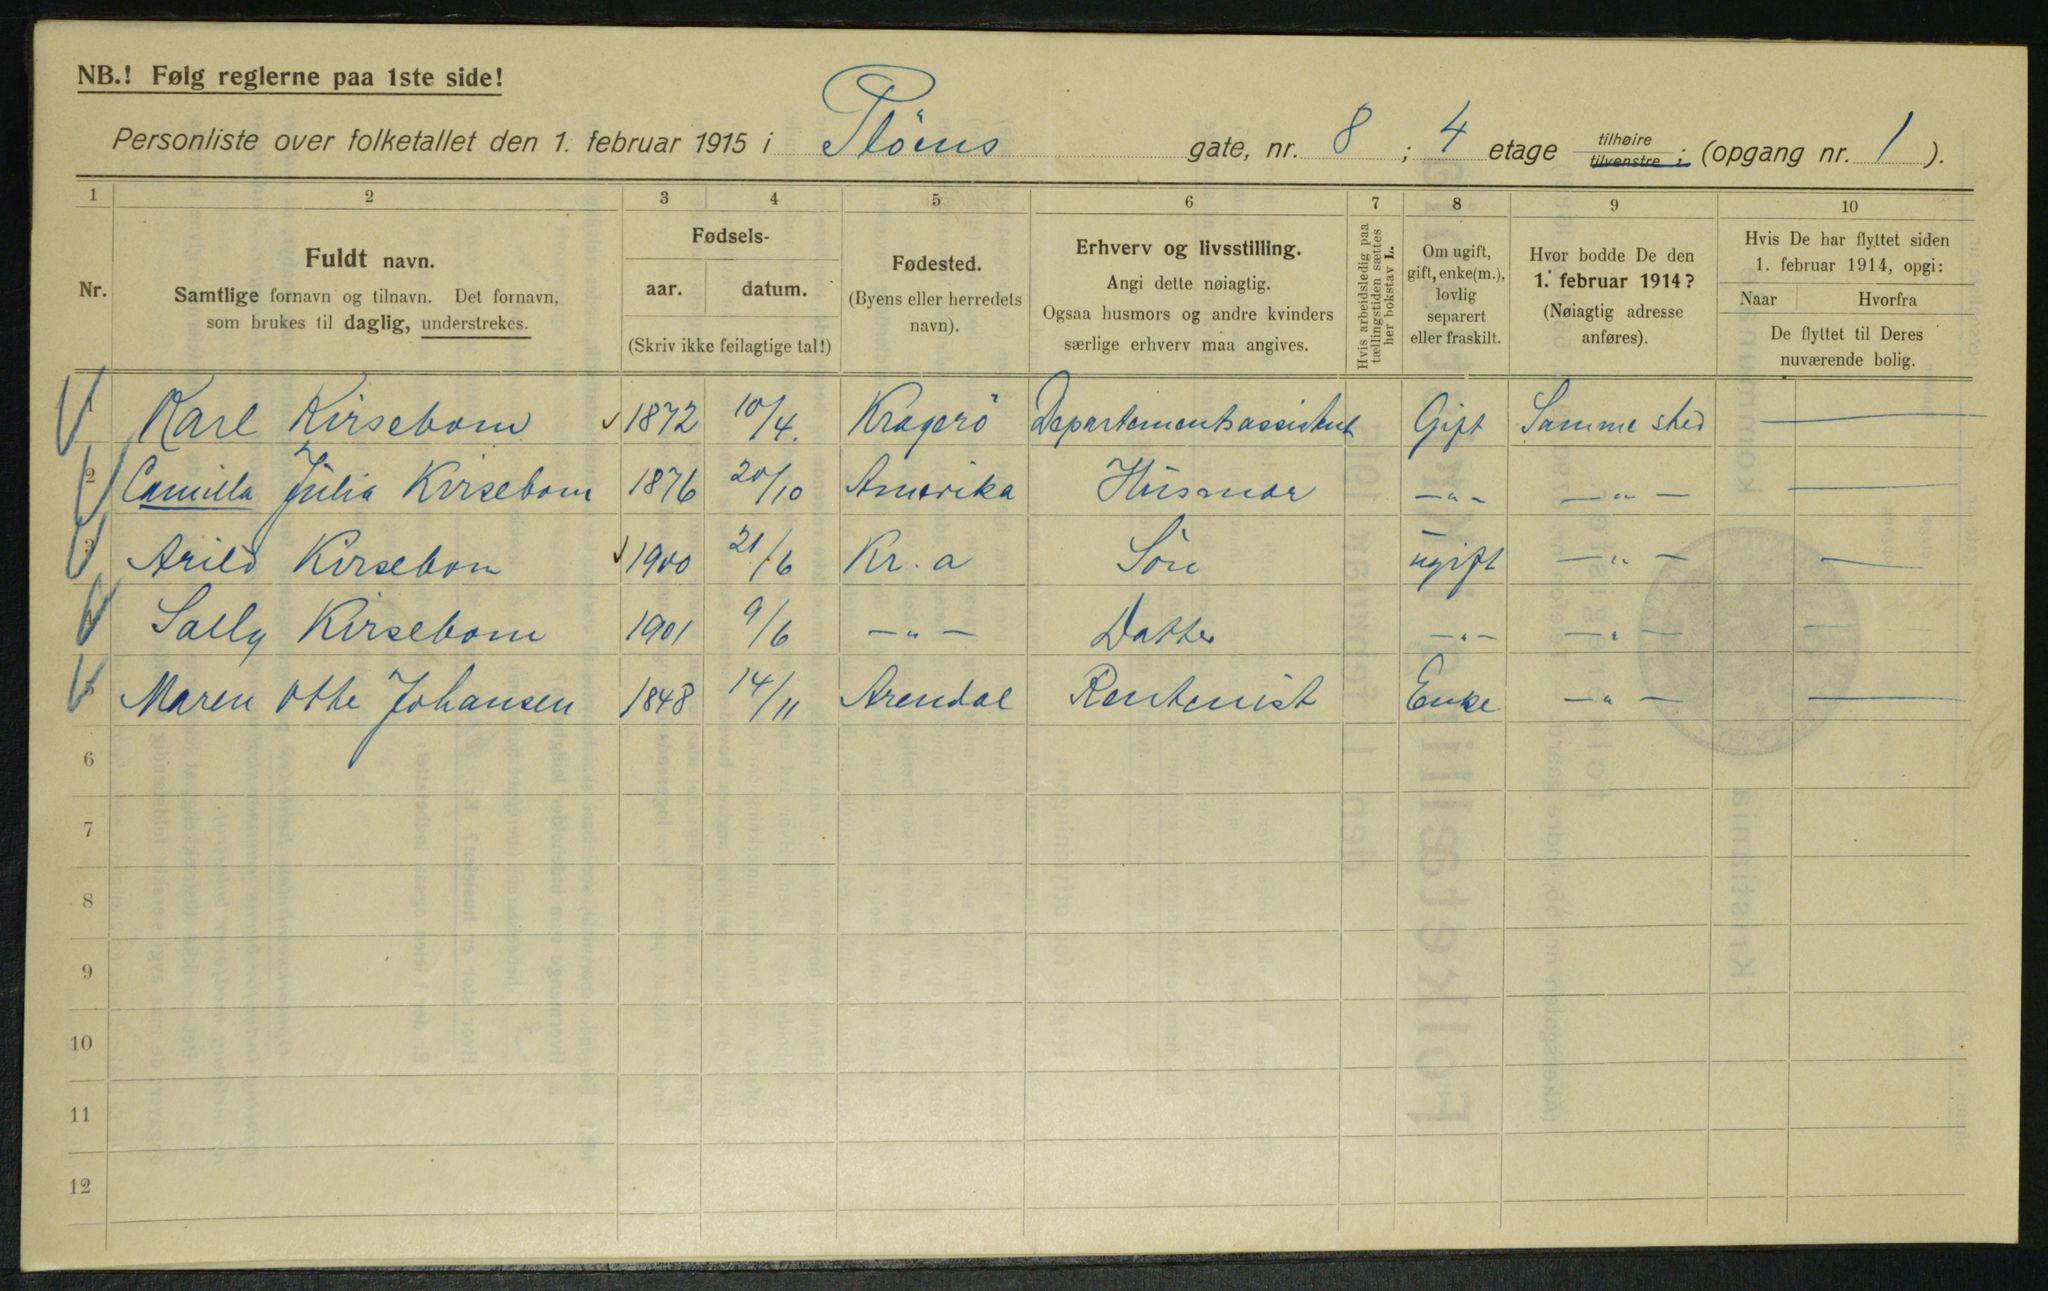 NB.! Følg reglerne paa 1ste side!
Personliste over folketallet den 1. februar 1915 i Pløens gate, nr. 8 ; 4 etage tilhøire tilvenstre i (opgang nr. 1 ).
1 2 3 4 5 6 7 8 9 10
Nr.
Fuldt navn.
Samtlige fornavn og tilnavn. Det fornavn,
som brukes til daglig, understrekes.
Fødsels-
aar. datum.
(Skriv ikke feilagtige tal!)
Fødested.
(Byens eller herredets
navn).
Erhverv og livsstilling.
Angi dette nøiagtig.
Ogsaa husmors og andre kvinders
særlige erhverv maa angives.
Hvis arbeidsledig paa
tællingstiden sættes
her bokstav L.
Om ugift,
gift, enke(m.),
lovlig
separert
eller fraskilt.
Hvor bodde De den
1. februar 1914?
(Nøiagtig adresse
anføres).
Hvis De har flyttet siden
1. februar 1914, opgi:
Naar Hvorfra
De flyttet til Deres
nuværende bolig.
1 Karl Kirsebom 1872 10/4. Kragerö Departementsassistent Gift Samme sted —
2 Camilla Julia Kirsebom 1876 20/10 Amerika Husmor — " — — " — —
3 Arild Kirsebom 1900 21/6 Kr. a Sön ugift — " — —
4 Sally Kirsebom 1901 9/6 — " — Datter — " — — " — —
5 Maren Othe Johansen 1848 14/11 Arendal Rentenist Enke — " — —
6
7
8
9
10
11
12